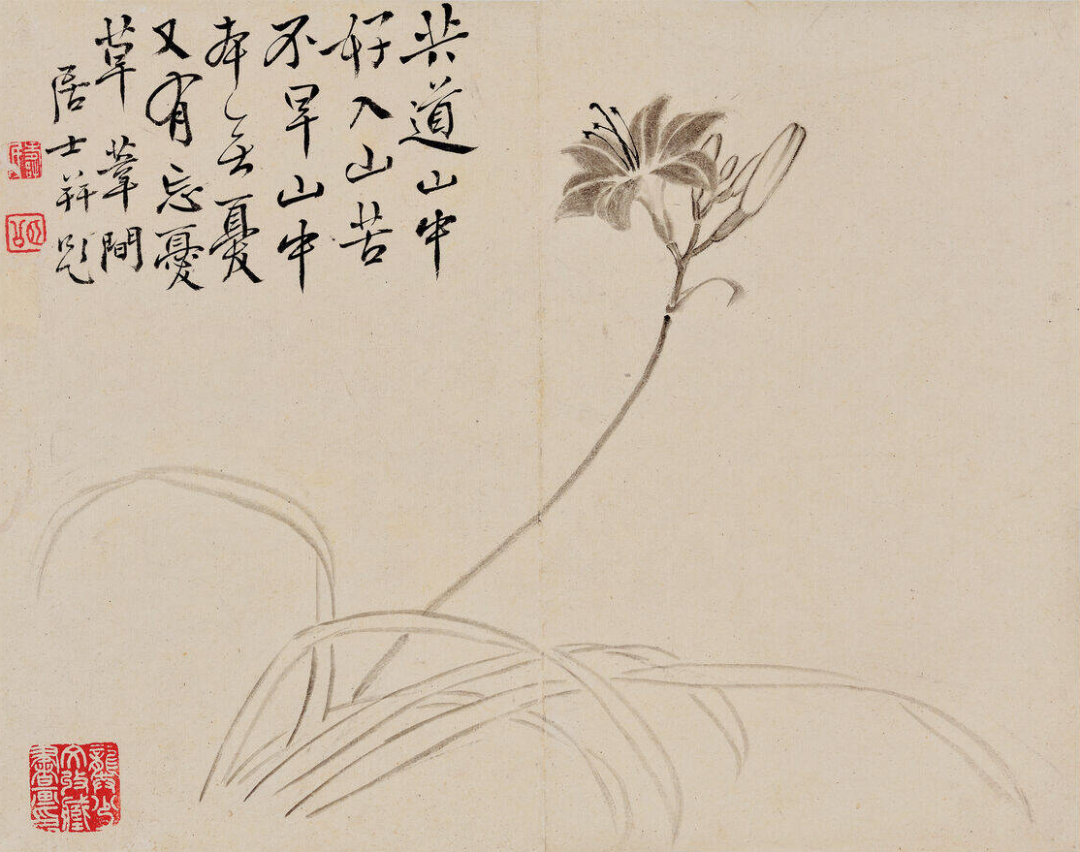 共道山中
好入山苦
不早山中
本无憂
又有忘憂
草 葦間
居士并題